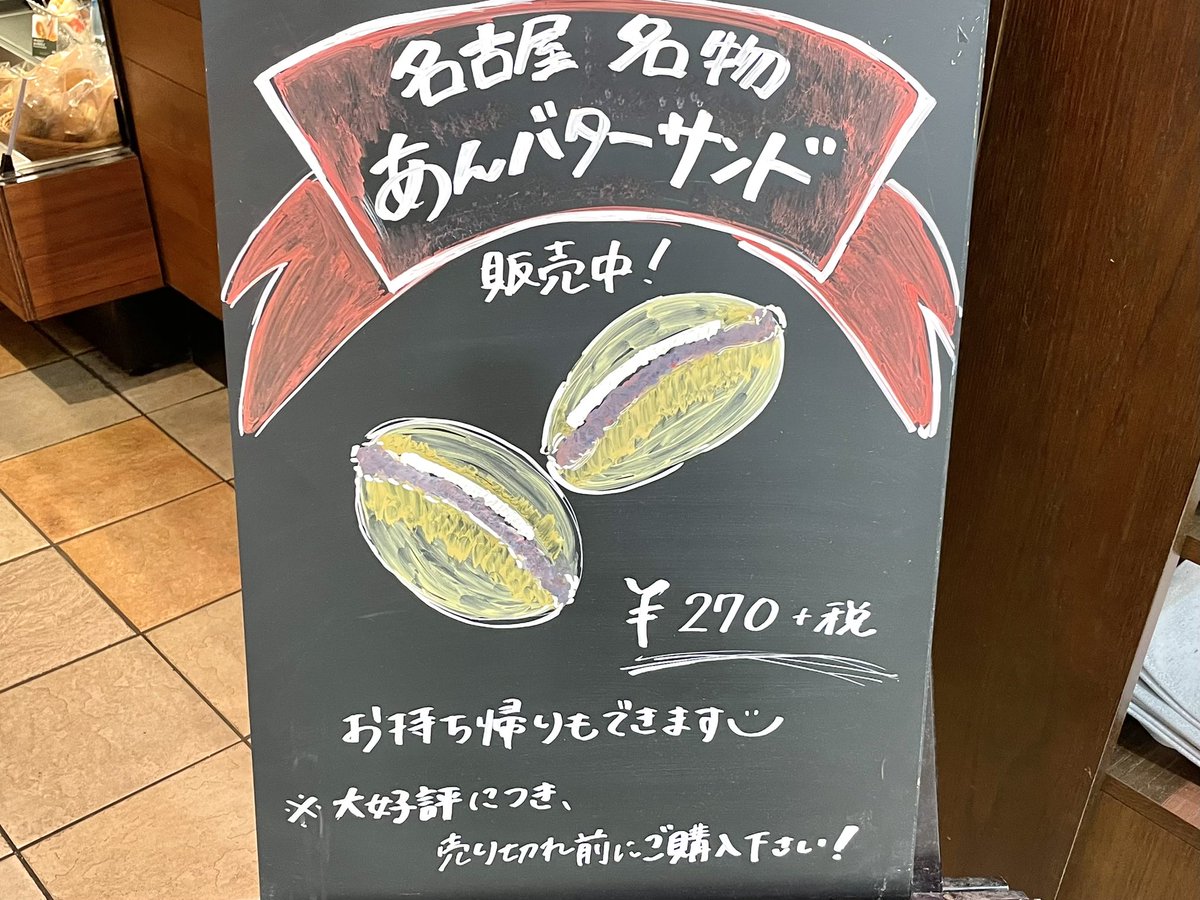 名古屋 名物
あんバターサンド
販売中!
¥270+税
お持ち帰りもできます
※大好評につき、
売り切れ前にご購入下さい!